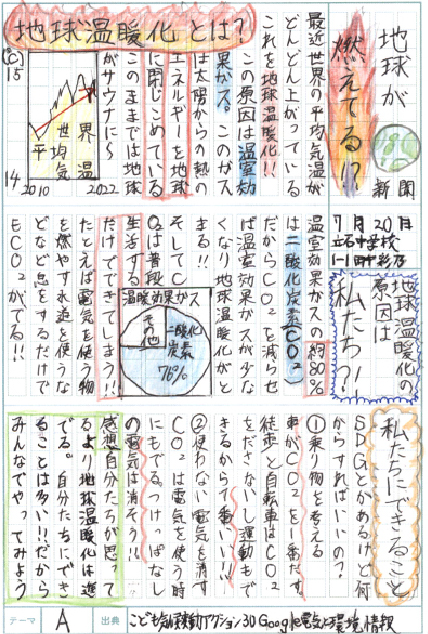 地球が
燃えてる?
新聞
地球温暖化とは?
最近世界の平均気温が
どんどん上がっている
これを地球温暖化!!
この原因は温室効
果ガス。このガス
は太陽からの熱の
エネルギーを地球
に閉じこめている
このままでは地球
がサウナに〜
(℃)
15
14
世界
平均気温
2010
2022
7月20日
立石中学校
1-1田中彩乃
地球温暖化の
原因は
私たち?!
温室効果ガスの約80%
は二酸化炭素CO2
だからCO2を減らせ
ば温室効果ガスが少な
くなり地球温暖化がと
まる!!
そしてC
O2は普段
生活する
だけでできてしまう!!
たとえば電気を使う物
を燃やす を使うな
どなど息をするだけで
もCO2がでる!!
温暖効果ガス
その他
二酸化
炭素
76%
私たちにできること
SDGsとかあるけど何
からすればいいの?
①乗り物を考える
車がCO2を一番だす
徒歩と自転車はCO2
をださないし運動もで
きるから一番いい!!
②使わない電気を消す
CO2は電気を使う時
にもでるつけっぱなし
の電気は消そう!!
感想自分たちが思って
るより地球温暖化は進
でる。自分たちにでき
ることは多い!!だから
みんなでやってみよう
テーマ
A
出典
こども気候変動アクション30 Google 電気と環境情報